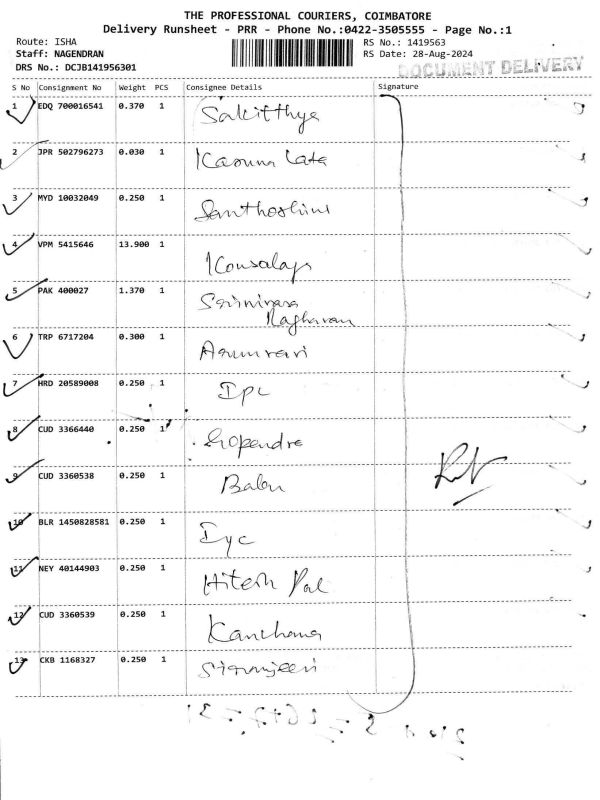 THE PROFESSIONAL COURIERS, COIMBATORE
Delivery Runsheet - PRR - Phone No.:0422-3505555 - Page No.:1
Route: ISHA
Staff: NAGENDRAN
DRS No.: DCJB141956301
RS No.: 1419563
RS Date: 28-Aug-2024
DOCUMENT DELIVERY
S No Consignment No Weight PCS Consignee Details Signature
1 EDQ 700016541 0.370 1 Sakitthya
2 JPR 502796273 0.030 1 Karuna Lata
3 MYD 10032049 0.250 1 Santhoshini
4 VPM 5415646 13.900 1 Kousalaya
5 PAK 400027 1.370 1 Srinivasa
Ragharan
6 TRP 6717204 0.300 1 Arunravi
7 HRD 20589008 0.250 1 IPC
8 CUD 3366440 0.250 1 Gopendra
9 CUD 3360538 0.250 1 Balan
10 BLR 1450828581 0.250 1 Iyc
11 NEY 40144903 0.250 1 Hitesh Pal
12 CUD 3360539 0.250 1 Kanchana
13 CKB 1168327 0.250 1 Siranjeevi